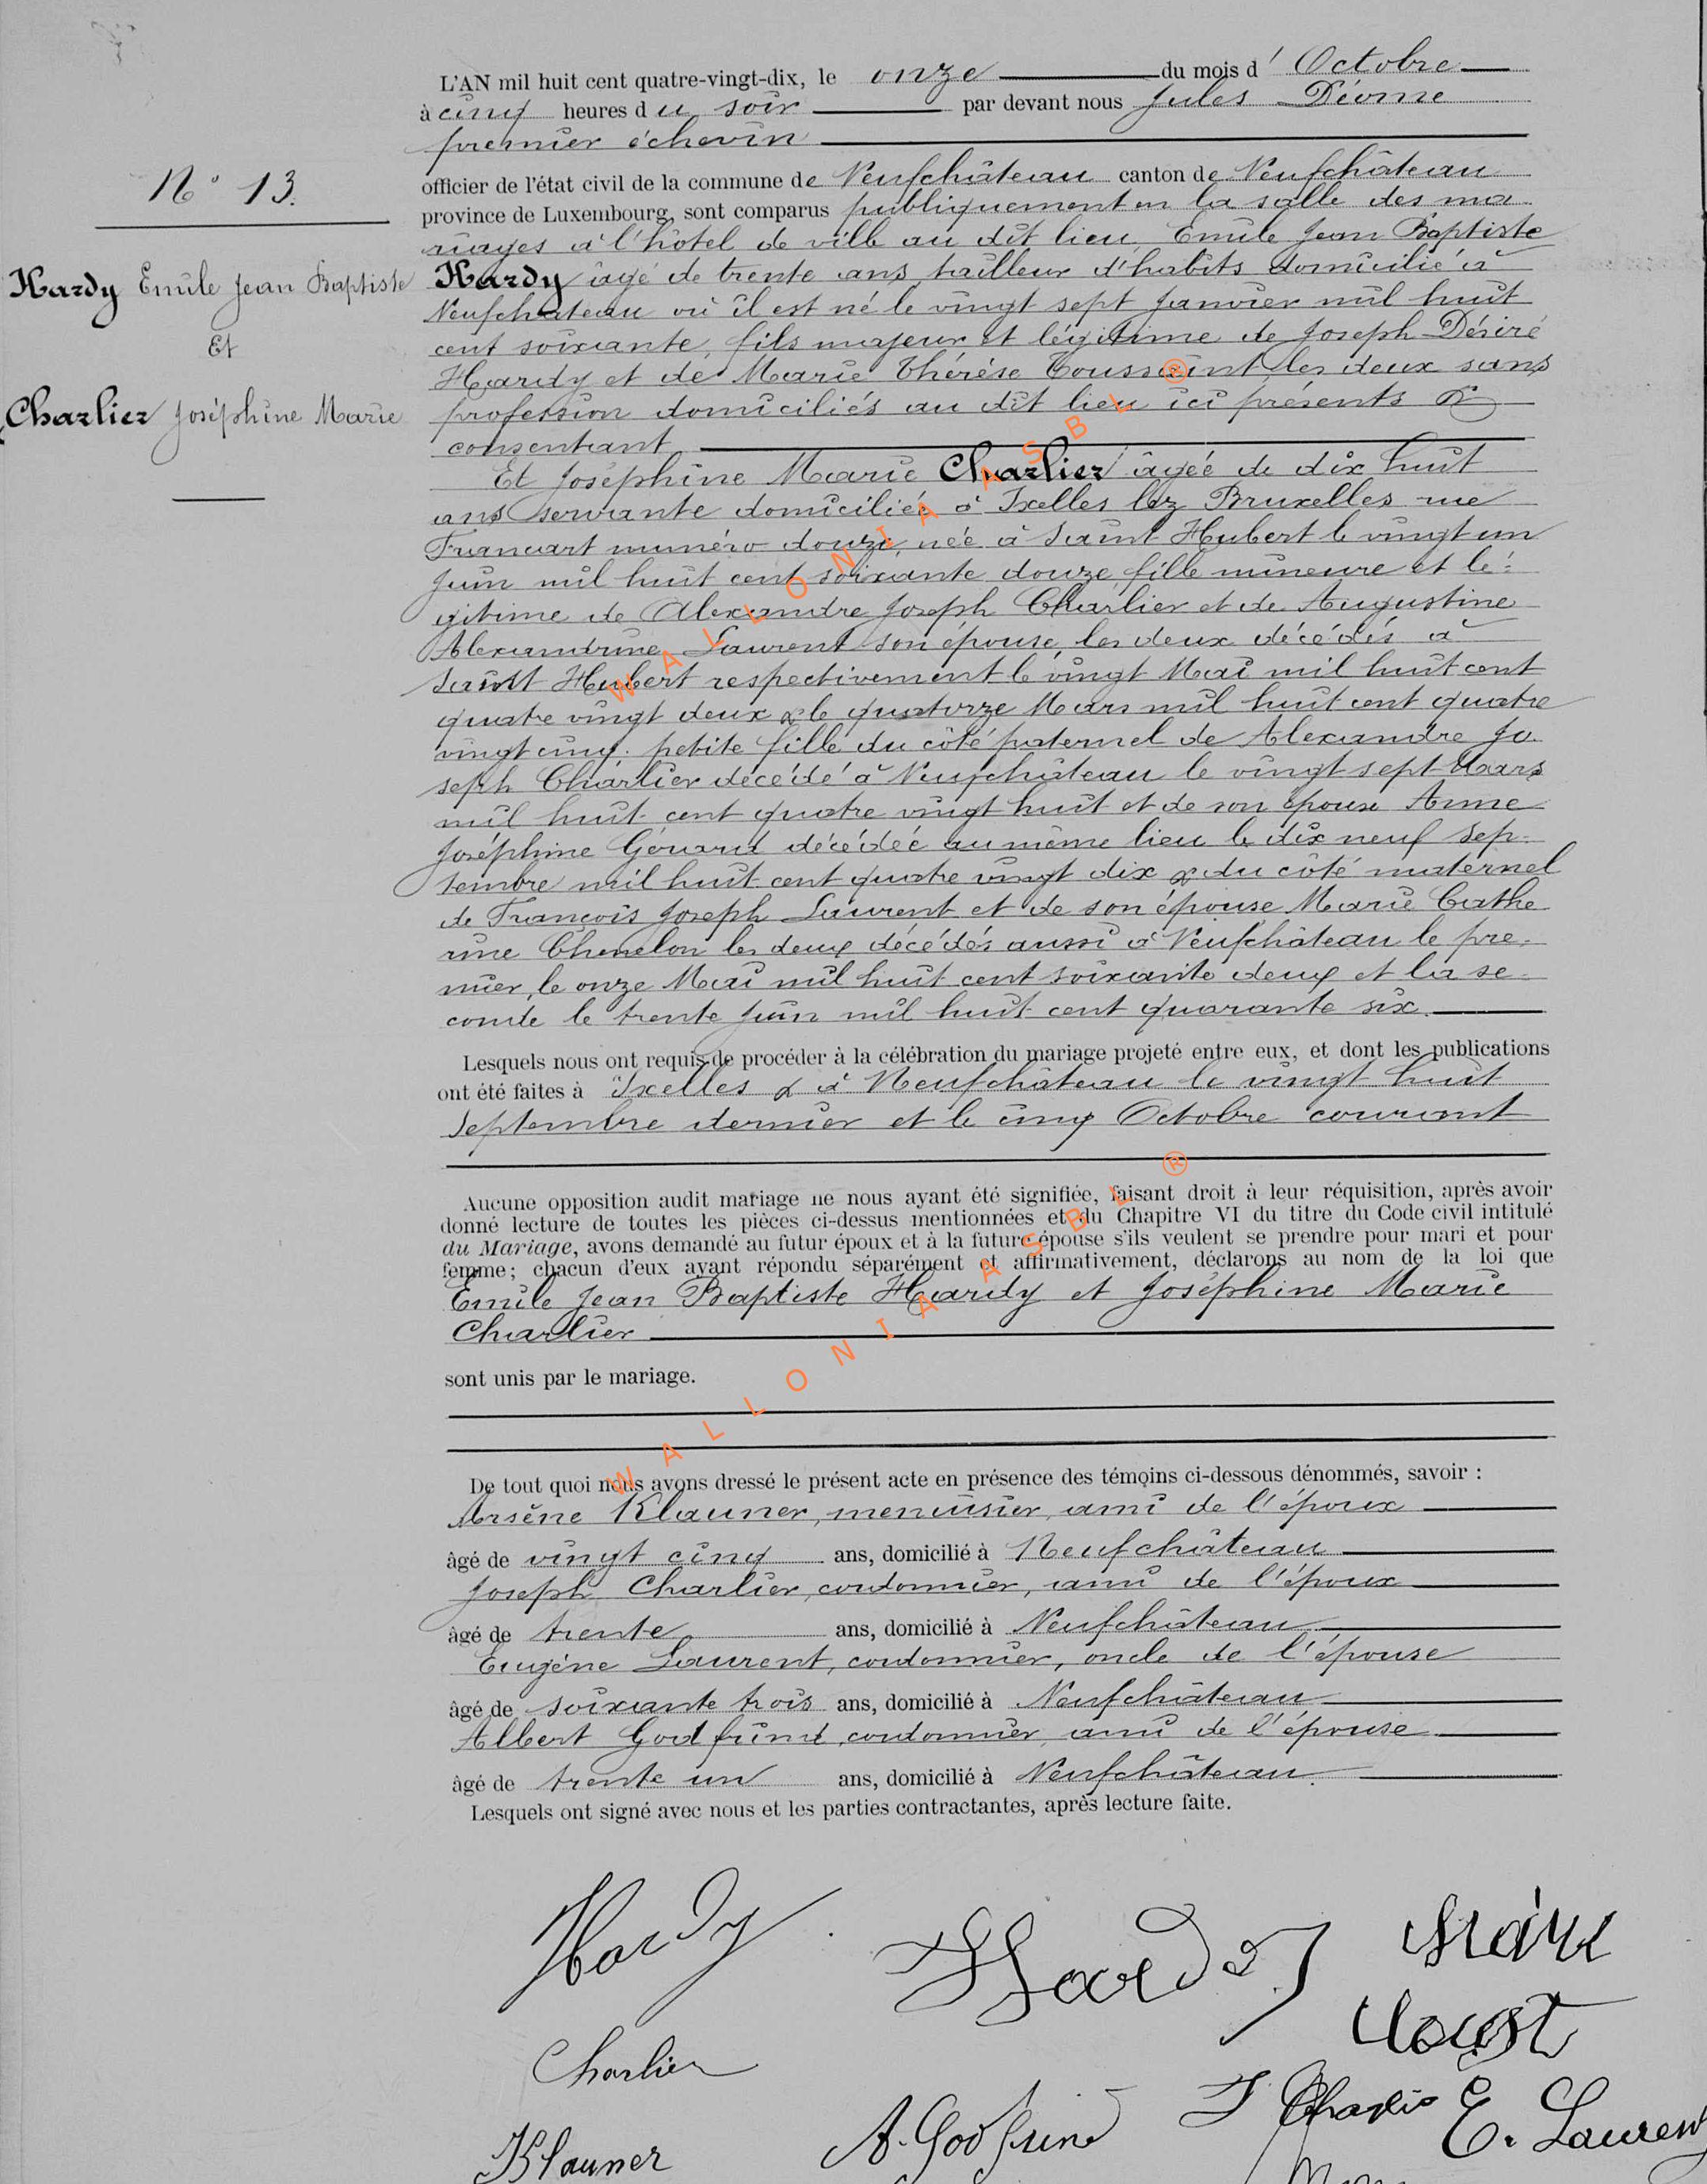 L'AN mil huit cent quatre-vingt-dix, le onze du mois d'Octobre
à cinq heures du soir par devant nous Jules Déome
premier échevin
N° 13.
officier de l'état civil de la commune de Neufchâteau canton de Neufchâteau
province de Luxembourg, sont comparus publiquement en la salle des ma
riages à l'hôtel de ville au dit lieu, Emile Jean Baptiste
Hardy Emile Jean Baptiste
Et
Charlier Joséphine Marie
Hardy âgé de trente ans, tailleur d'habits domicilié à
Neufchateau où il est né le vingt sept Janvier mil huit
cent soixante, fils majeur et légitime de Joseph Désiré
Hardy et de Marie Thérèse Toussaint les deux sans
profession domiciliés au dit lieu ici présents &
consentant
Et Joséphine Marie Charlier âgée de dix huit
ans servante domiciliée à Ixelles lez Bruxelles rue
Francart numéro douze, née à Saint Hubert le vingt un
Juin mil huit cent soixante douze, fille mineure et lé=
gitime de Alexandre Joseph Charlier et de Augustine
Alexandrine Laurent son épouse, les deux décédés à
Saint Hubert respectivement le vingt Mai mil huit cent
quatre vingt deux & le quatorze Mars mil huit cent quatre
vingt cinq. petite fille du côté paternel de Alexandre Jo.
seph Charlier décédé à Neufchâteau le vingt sept Mars
mil huit cent quatre vingt huit et de son épouse Anne
Joséphine Gérard décédée au même lieu le dix neuf Sep=
tembre mil huit cent quatre vingt dix & du côté maternel
de François Joseph Laurent et de son épouse Marie Cathe
rine Chenelon les deux décédés aussi à Neufchâteau le pre=
mier, le onze Mai mil huit cent soixante deux et la se=
conde le trente Juin mil huit cent quarante six.
Lesquels nous ont requis de procéder à la célébration du mariage projeté entre eux, et dont les publications
ont été faites à Ixelles & à Neufchâteau le vingt huit
Septembre dernier et le cinq Octobre courant
Aucune opposition audit mariage ne nous ayant été signifiée, faisant droit à leur réquisition, après avoir
donné lecture de toutes les pièces ci-dessus mentionnées et du Chapitre VI du titre du Code civil intitulé
du Mariage, avons demandé au futur époux et à la future épouse s'ils veulent se prendre pour mari et pour
femme; chacun d'eux ayant répondu séparément et affirmativement, déclarons au nom de la loi que
Emile Jean Baptiste Hardy et Joséphine Marie
Charlier
sont unis par le mariage.
De tout quoi nous avons dressé le présent acte en présence des témoins ci-dessous dénommés, savoir :
Arsène Klauner, menuisier, ami de l'époux
âgé de vingt cinq ans, domicilié à Neufchâteau
Joseph Charlier, cordonnier, ami de l'époux
âgé de trente ans, domicilié à Neufchâteau
Eugène Laurent, cordonnier, oncle de l'épouse
âgé de soixante trois ans, domicilié à Neufchâteau
Albert Godfrind, cordonnier, ami de l'épouse
âgé de trente un ans, domicilié à Neufchâteau.
Lesquels ont signé avec nous et les parties contractantes, après lecture faite.
Hardy
Hardy
Charlier
E. Laurent
A. Godfrind
Klauner
WALLONIA ASBL ®
WALLONIA ASBL ®